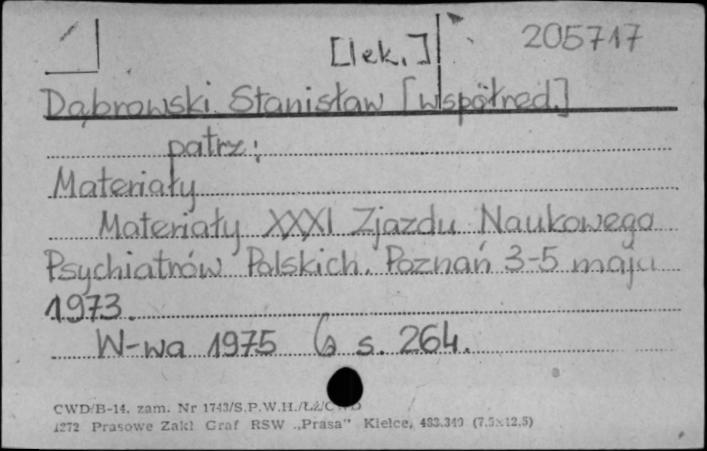 [lek.] 205717
Dąbrowski Stanisław [współred.]
patrz:
Materiały
Materiały XXXI Zjazdu Naukowego
Psychiatrów Polskich. Poznań 3-5 maja
1973.
W-wa 1975 s. 264.
CWD/B-14. zam. Nr 1743/S.P.W.H./ŁŻ/CWD
1272 Prasowe Zakł Graf RSW „Prasa" Kielce, 483.349 (7,5x12,5)